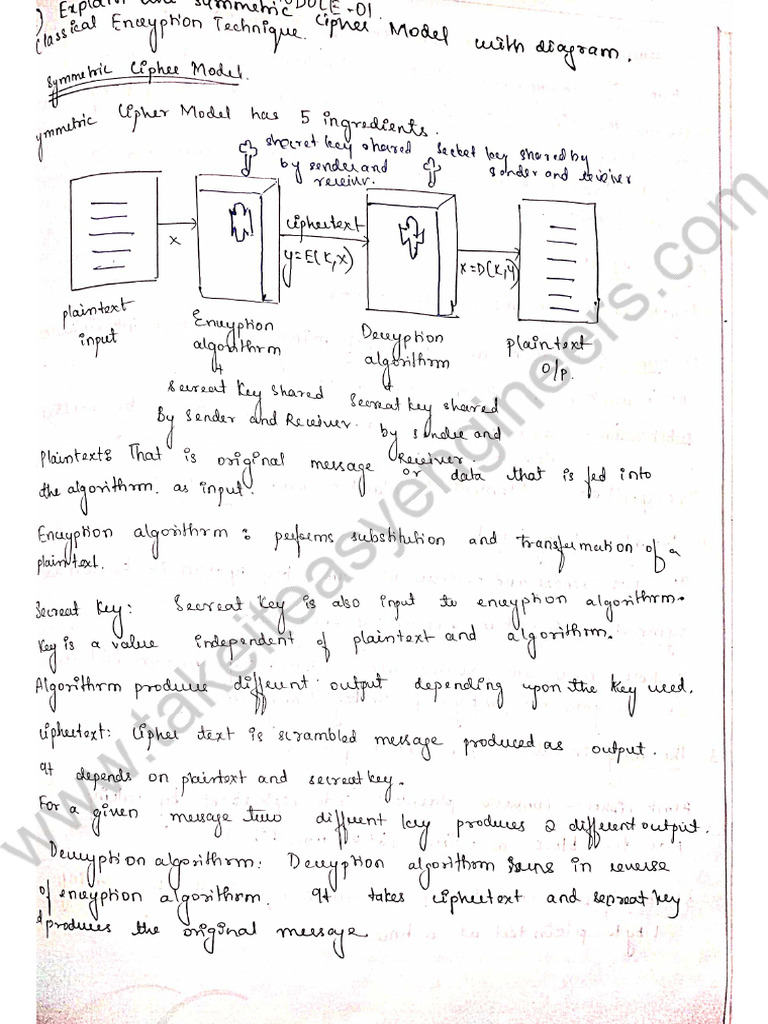 MODULE-01
1) Explain the symmetric Cipher Model with diagram.
Classical Encryption Technique.
Symmetric Cipher Model.
ymmetric Cipher Model has 5 ingredients.
shecret key shared
by sender and
receiver.
Secket key shared by
sender and receiver
x
ciphertext
y=E(K,x)
x=D(K,y)
plaintext
input
Encryption
algorithrm
Decryption
algorithrm
plaintext
O/P.
Secreat Key shared
By Sender and Receiver.
Secreat key shared
by sender and
Receiver.
Plaintext: That is original message or data that is fed into
the algorithrm. as input.
Encryption algorithrm: performs substitution and transformation of a
plaintext.
Secreat key: Secreat key is also input to encryption algorithrm.
Key is a value independent of plaintext and algorithrm.
Algorithrm produce different output depending upon the key used.
ciphertext: Cipher text is scrambled message produced as output.
It depends on plaintext and secreat key.
For a given message two diffrent key produces 2 different output.
Decryption algorithrm: Decryption algorithrm runs in reverse
of encryption algorithrm. It takes ciphertext and secreat key
d produces the original message
www.takeiteasyengineers.com